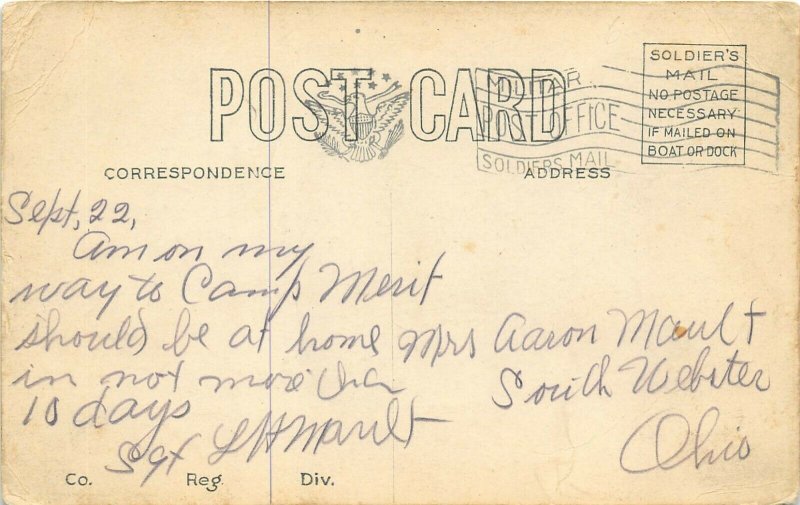 POST CARD
MILITARY
POST OFFICE
SOLDIERS MAIL
SOLDIER'S
MAIL
NO POSTAGE
NECESSARY
IF MAILED ON
BOAT OR DOCK
CORRESPONDENCE
ADDRESS
Sept, 22,
Am on my
way to Camp Merit
should be at home
in not more than
10 days
Sgt L H Mault
Mrs Aaron Mault
South Webster
Ohio
Co. Reg. Div.